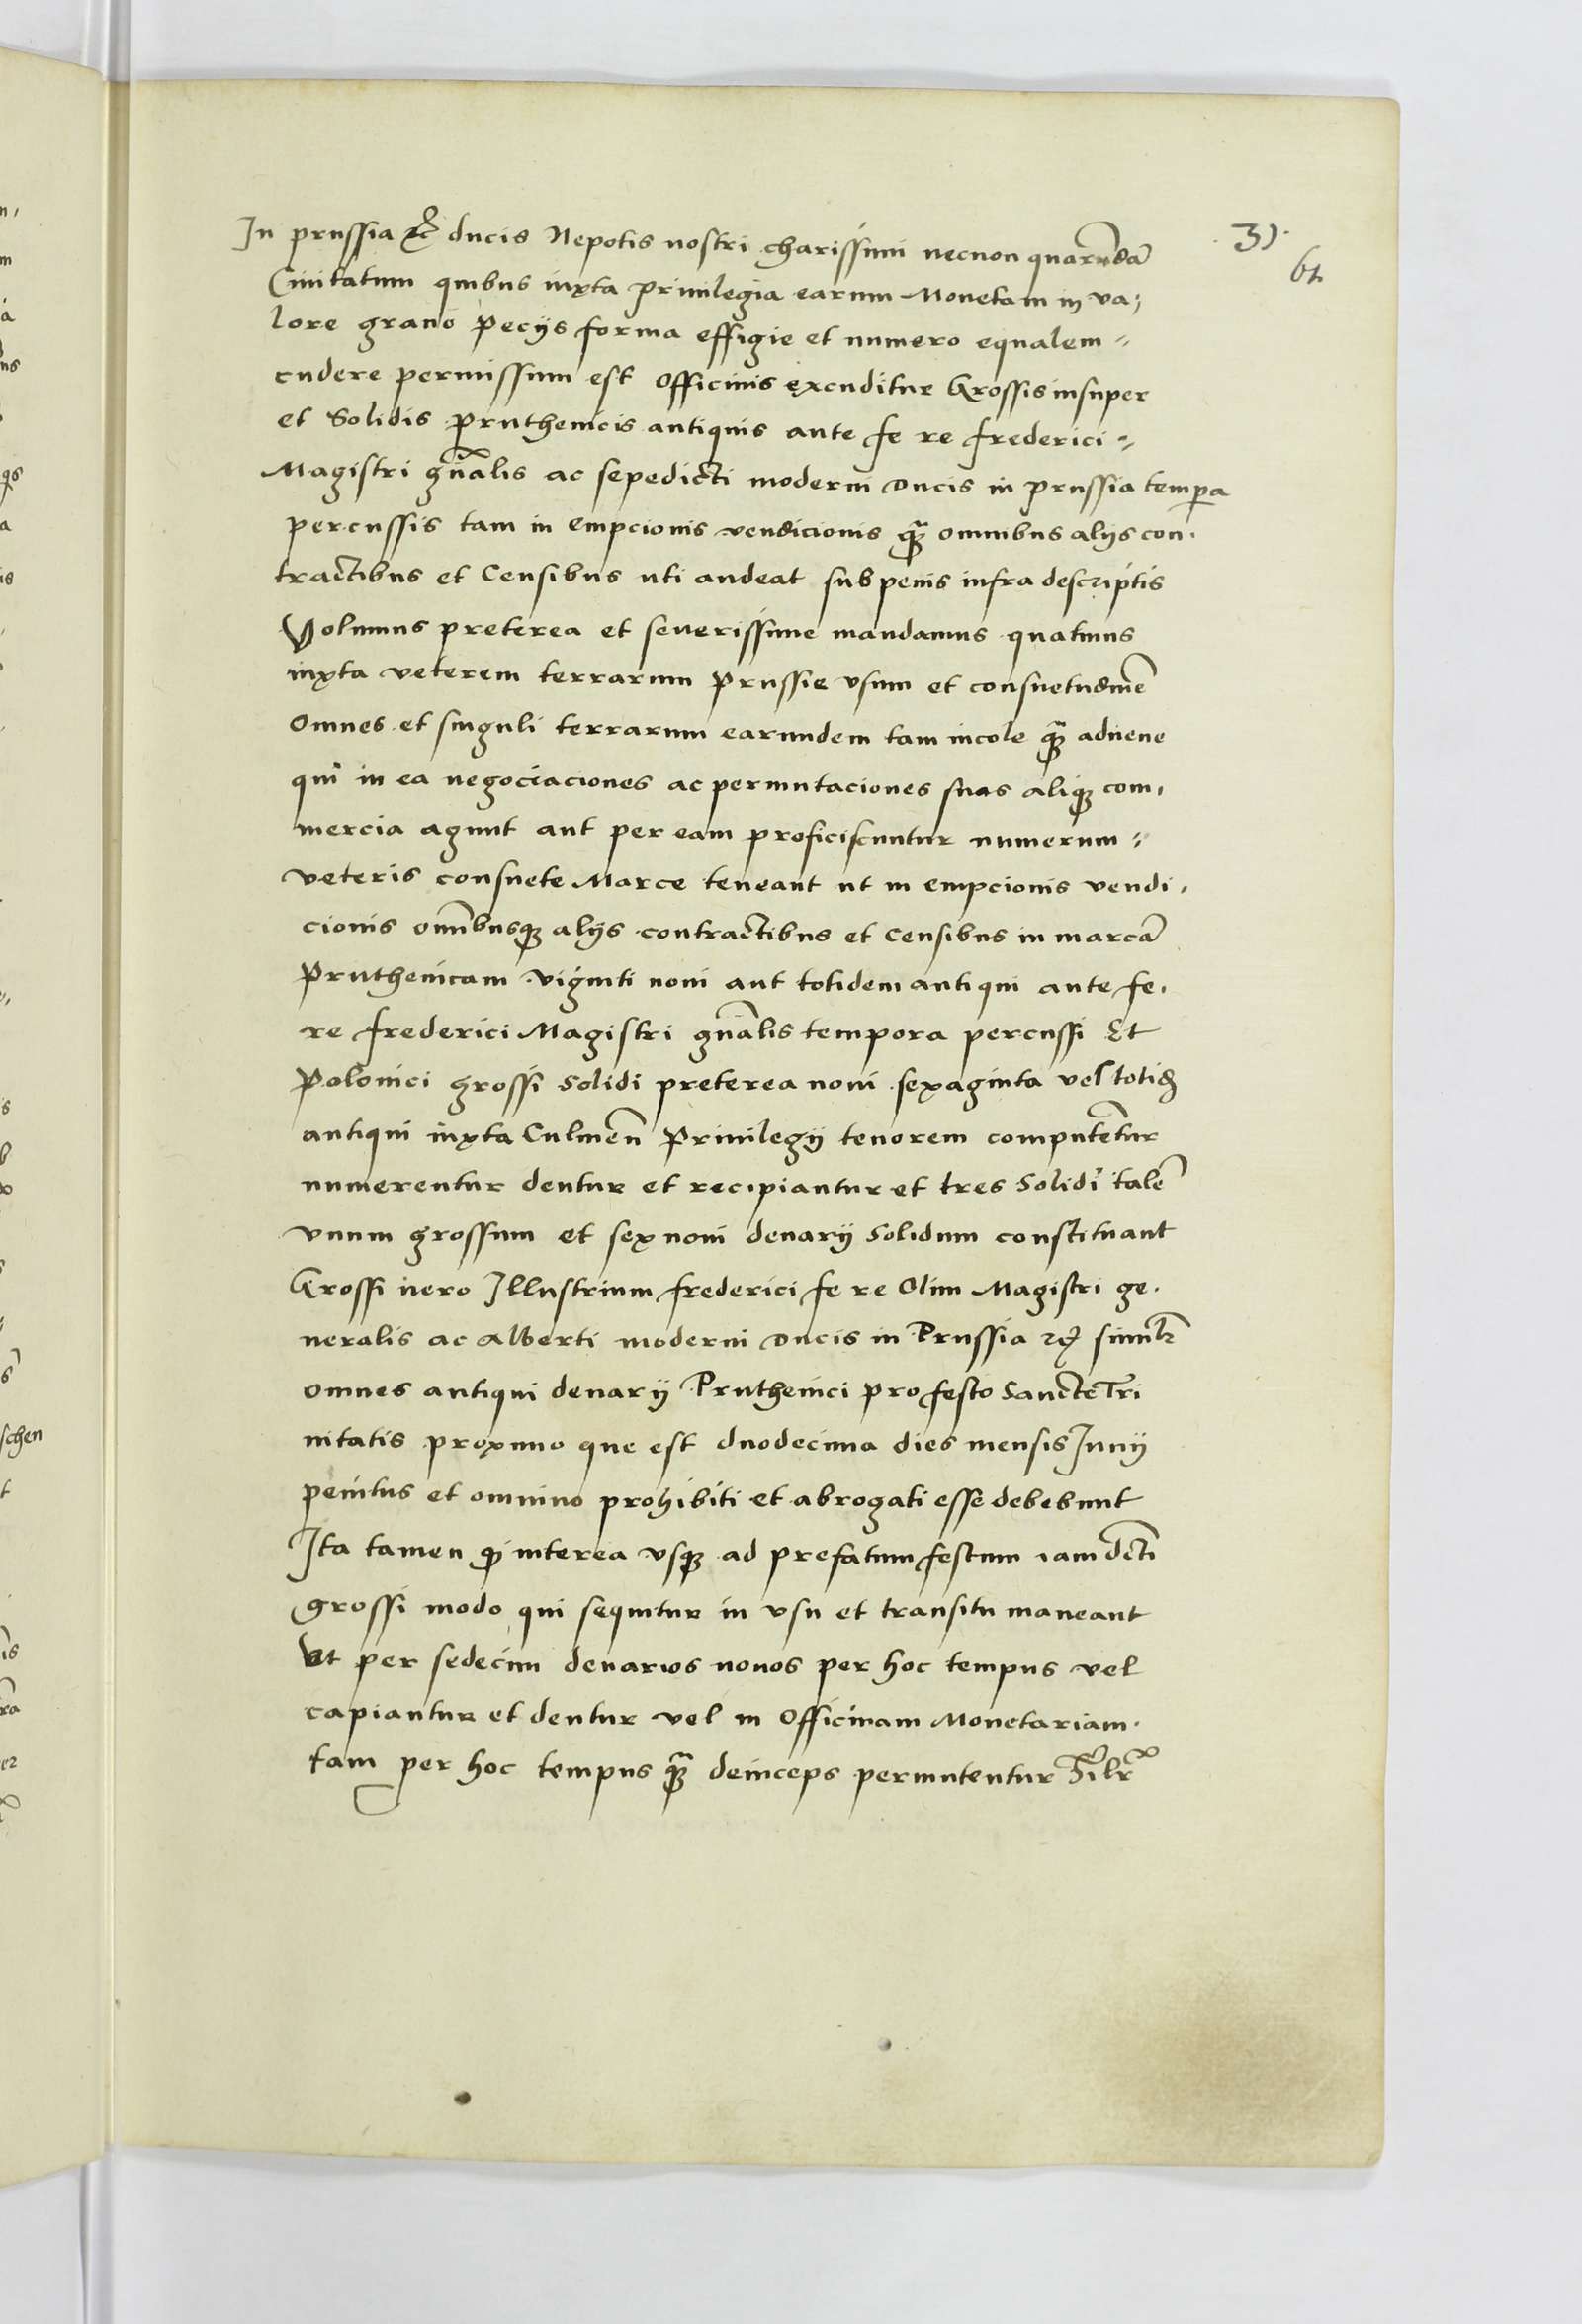 31.
61
In prussia etc ducis Nepotis nostri charissimi necnon quarundā
Ciuitatum quibus iuxta priuilegia earum Monetam in va,
lore grano pecijs forma effigie et numero equalem
cudere permissum est officinis excuditur Grossis insuper
et Solidis pruthenicis antiquis ante fe re frederici
Magistri gn̄alis ac sepedicti moderni Ducis in prussia tempora
percussis tam in empcionis vendicionis q̄ꝫ omnibus alijs con.
tractibus et Censibus uti audeat sub penis infra descriptis
Volumus preterea et seuerissime mandamus quatinus
iuxta veterem terrarum prussie vsum et consuetudinē
omnes et singuli terrarum earundem tam incole q̄ꝫ aduene
qui in ea negociaciones ac permutaciones suas aliqꝫ com,
mercia agunt aut per eam proficiscuntur numerum
veteris consuete Marce teneant ut in empcionis vendi.
cionis om̄ibusqꝫ alijs contractibus et Censibus in marcā
pruthenicam viginti noui aut totidem antiqui ante fe.
re frederici Magistri gn̄alis tempora percussi Et
polonici grossi Solidi preterea noui sexaginta vel totidꝫ
antiqui iuxta Culmeñ priuilegij tenorem computētur
numerentur dentur et recipiantur et tres Solidi talē
vnum grossum et sex noui denarij Solidum constituant
Grossi uero Illustrium frederici fe re Olim Magistri ge.
neralis ac Alberti moderni Ducis in Prussia etc similr̄
omnes antiqui denarij Pruthenici pro festo Sancte Tri
nitatis proximo que est duodecima dies mensis Iunij
penitus et omnino prohibiti et abrogati esse debebunt
Ita tamen qꝫ interea vsqꝫ ad prefatum festum iam dcti
grossi modo qui sequitur in vsu et transitu maneant
Vt per sedecim denarios nouos per hoc tempus vel
capiantur et dentur vel in Officinam Monetariam.
tam per hoc tempus q̄ꝫ deinceps permutentur Silr̄